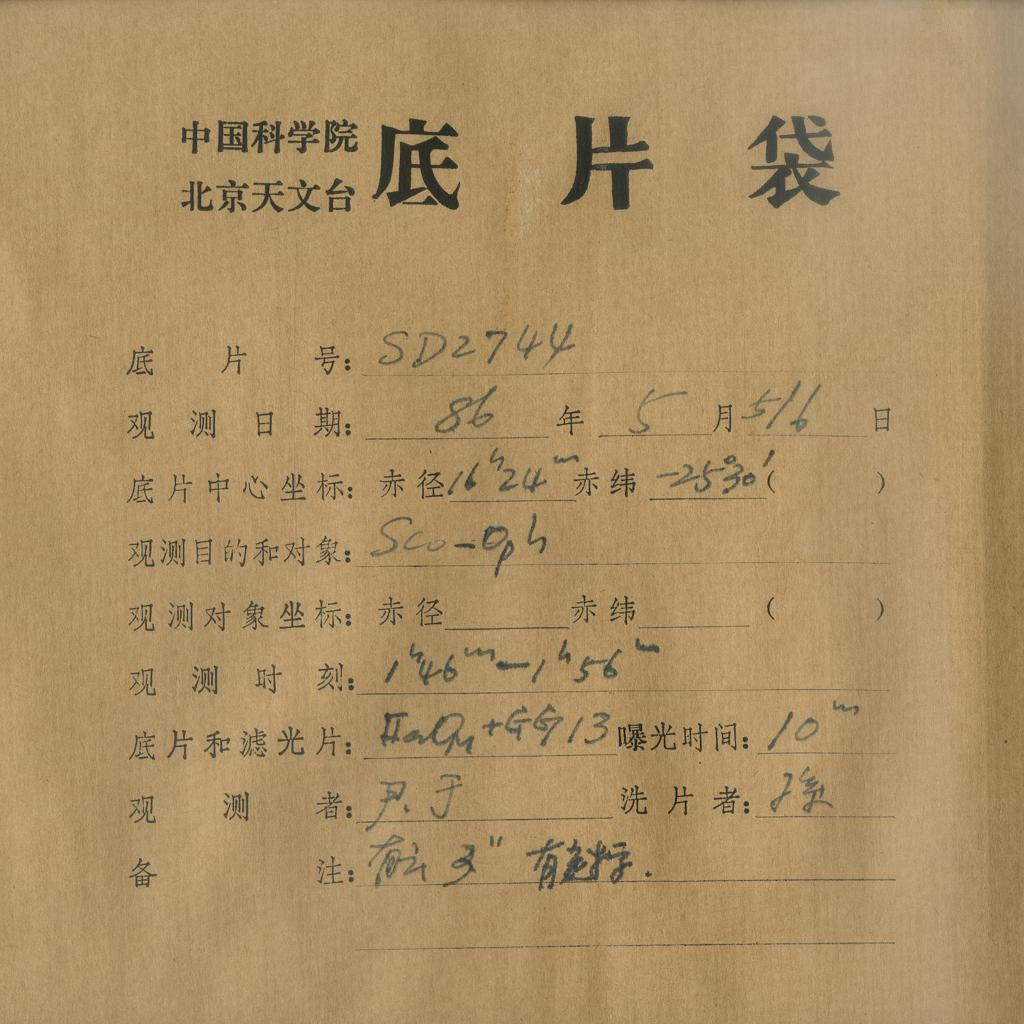 中国科学院
北京天文台
底片袋
底片号：SD2744
观测日期：86年5月5/6日
底片中心坐标：赤径16ʰ24ᵐ赤纬-25°30′( )
观测目的和对象：Sco-Oph
观测对象坐标：赤径 赤纬 ( )
观测时刻：1ʰ46ᵐ-1ʰ56ᵐ
底片和滤光片：+GG13 曝光时间：10ᵐ
观测者：尹.于 洗片者：
备注：有云 3″ 有